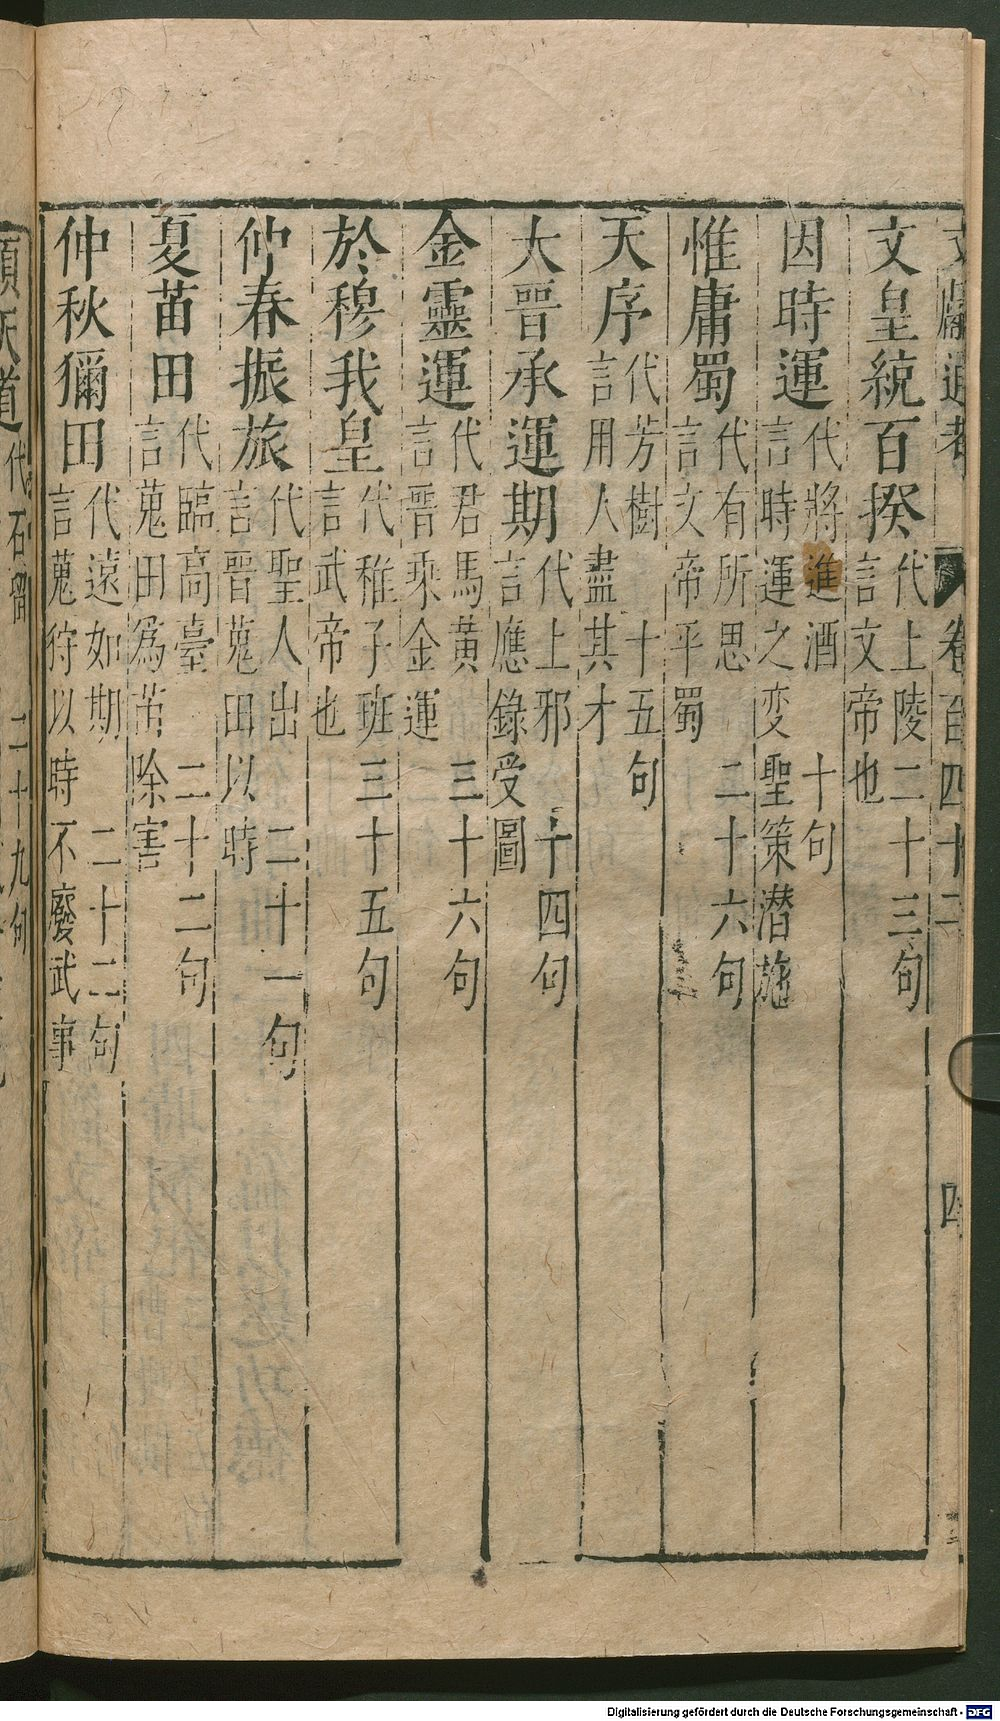 文獻通考 卷百四十二 四
文皇統百揆 代上陵二十三句 言文帝也
因時運 代將進酒 十句 言時運之变聖策潛施
惟庸蜀 代有所思 二十六句 言文帝平蜀
天序 代芳樹 十五句 言用人盡其才
大晉承運期 代上邪 十四句 言應錄受圖
金靈運 代君馬黃 三十六句 言晉乘金運
於穆我皇 代稚子班三十五句 言武帝也
仲春振旅 代聖人出 二十一句 言晉蒐田以時
夏苗田 代臨高臺 二十二句 言蒐田為苗除害
仲秋獮田 代遠如期 二十二句 言蒐狩以時不廢武事
順天道 代石留 二十九句
Digitalisierung gefördert durch die Deutsche Forschungsgemeinschaft - DFG